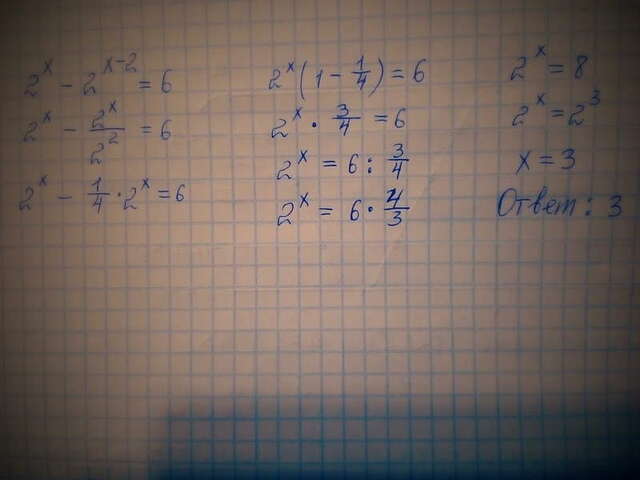 2^x - 2^{x-2} = 6
2^x - \frac{2^x}{2^2} = 6
2^x - \frac{1}{4} \cdot 2^x = 6
2^x (1 - \frac{1}{4}) = 6
2^x \cdot \frac{3}{4} = 6
2^x = 6 : \frac{3}{4}
2^x = 6 \cdot \frac{4}{3}
2^x = 8
2^x = 2^3
x = 3
Ответ: 3